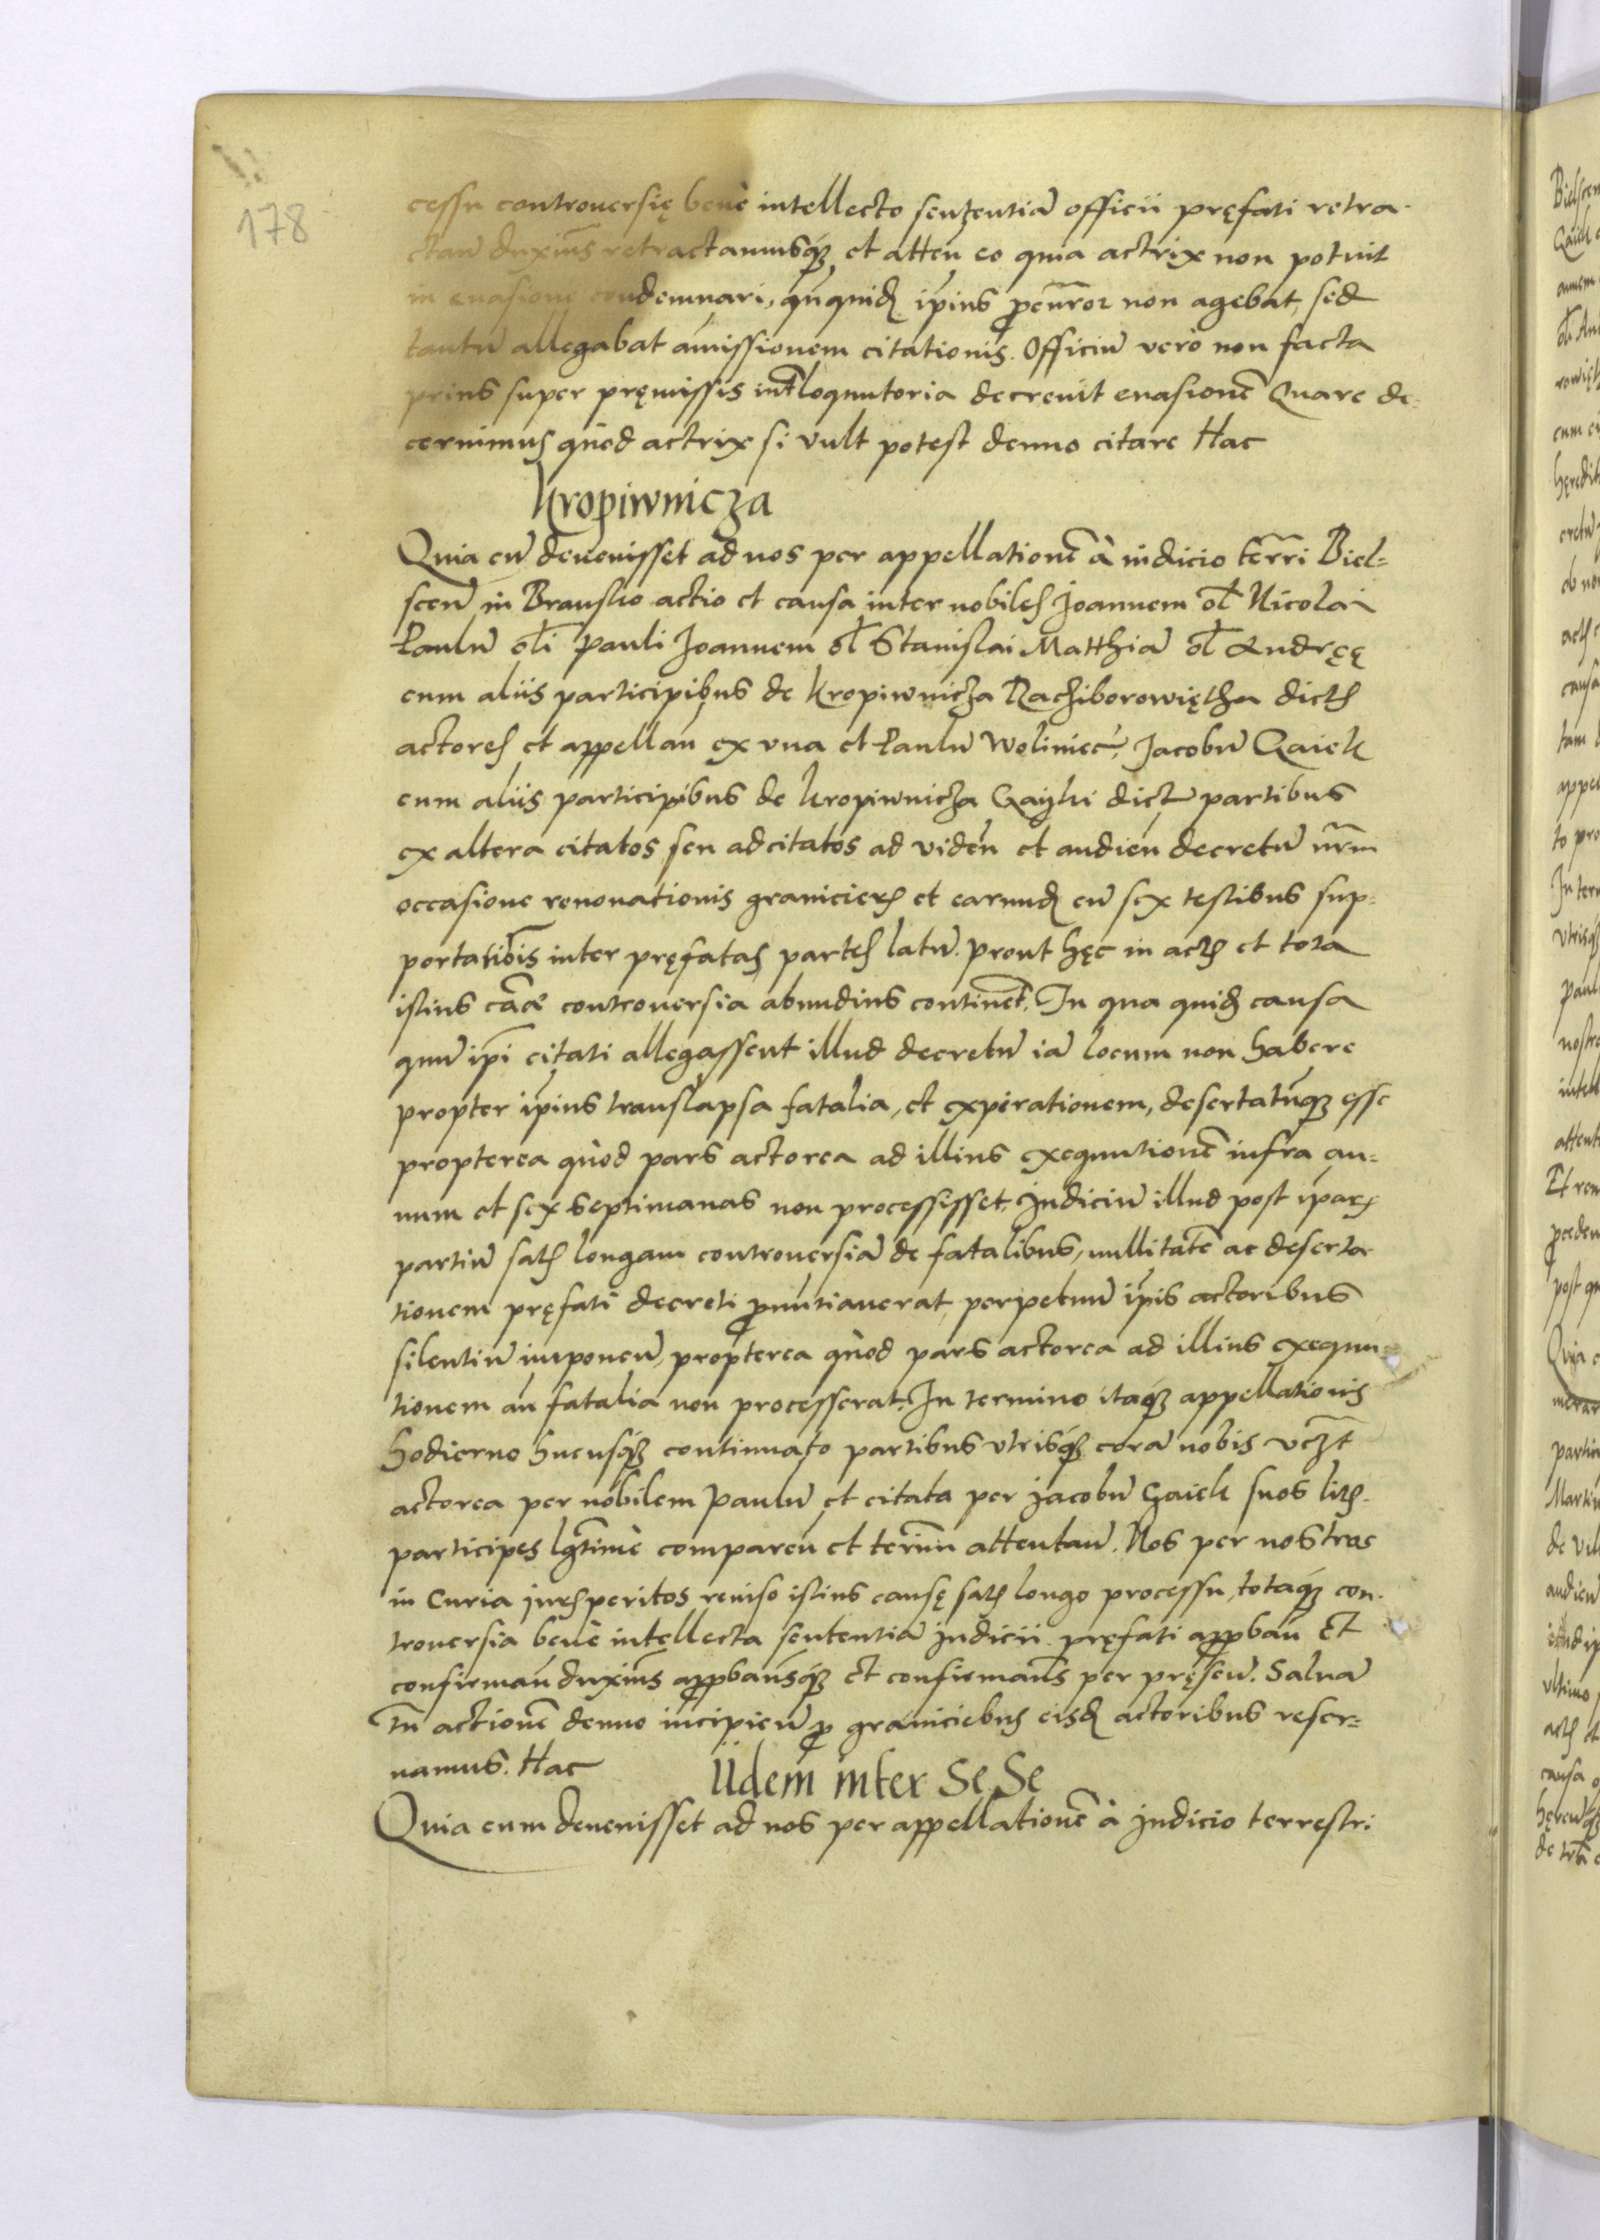 178
cessu controuersię benè intellecto sentzentiā officii pręfati retra-
ctan̄ duxim̄s retractamusq́ et atten̄ eo quia actrix non potuit
in euasione condemnari, qn̄quid ip̄ius procūror non agebat, sed
tantū allegabat amissionem citationis. Officiū verò non facta
prius super pręmissis int̄loquutoria decreuit euasionē Quare de-
cernimus quòd actrix si vult potest denuo citare Hac
Kropiwnicza
Quia cū deuenisset ad nos per appellationē à iudicio terr̄ri Biel=
scen̄ in Bransko actio et causa inter nobiles Joannem ol̄ Nicolai
Paulū ol̄i Pauli Joannem ol̄ Stanislai Matthiā ol̄ Andręę
cum aliis participibus de Kropiwnicza Racziborowiętha dict
actores et appellan̄ ex vna et Paulū Woliniec, Jacobū Gaiek
cum aliis participibus de Kropiwnicza Gayki dict partibus
ex altera citatos seu adcitatos ad viden̄ et audien̄ decretū nr̄m
occasione renouationis granicier et earund cū sex testibus sup-
portatiōis inter pręfatas partes latū. prout hęc in act et tota
istius cāæ controuersia abundius continet̄. In qua quid causa
quū ip̄i citati allegassent illud decretū iā locum non habere
propter ip̄ius translapsa fatalia, et expirationem, desertatūq́ esse
propterea quòd pars actorea ad illius exequutionē infra an-
num et sex septimanas non processisset. Judiciū illud post ip̄ar
partiū sat longam controuersiā de fatalibus, nullitatē ac deserta
tionem pręfati decreti pronūtiauerat, perpetuū ip̄is actoribus
silentiū imponen̄, propterea quòd pars actorea ad illius exequu-
tionem an̄ fatalia non processerat. In termino itaq́ appellationis
hodierno hucusq́ continuato partibus vtrisq́ corā nobis vczt̄
actorea per nobilem Paulū et citata per Jacobū Gaiek suos lit-
participes lgt̄imè comparen̄ et termī attentan̄. Nos per nostros
in Curia Jurisperitos reuiso istius causę sat longo processu, totaq́ con-
trouersia benè intellecta sententiā Judicii pręfati approban̄ Et
confirman̄ duxim̄s approbam̄sq́ et confirmam̄s per pręsen̄. Saluā
tn̄ actionē denuo incipien̄ pro graniciebus eisd actoribus reser=
uamus. Hac
Iidem inter Se Se
Quia cum deuenisset ad nos per appellationē à Judicio terrestri